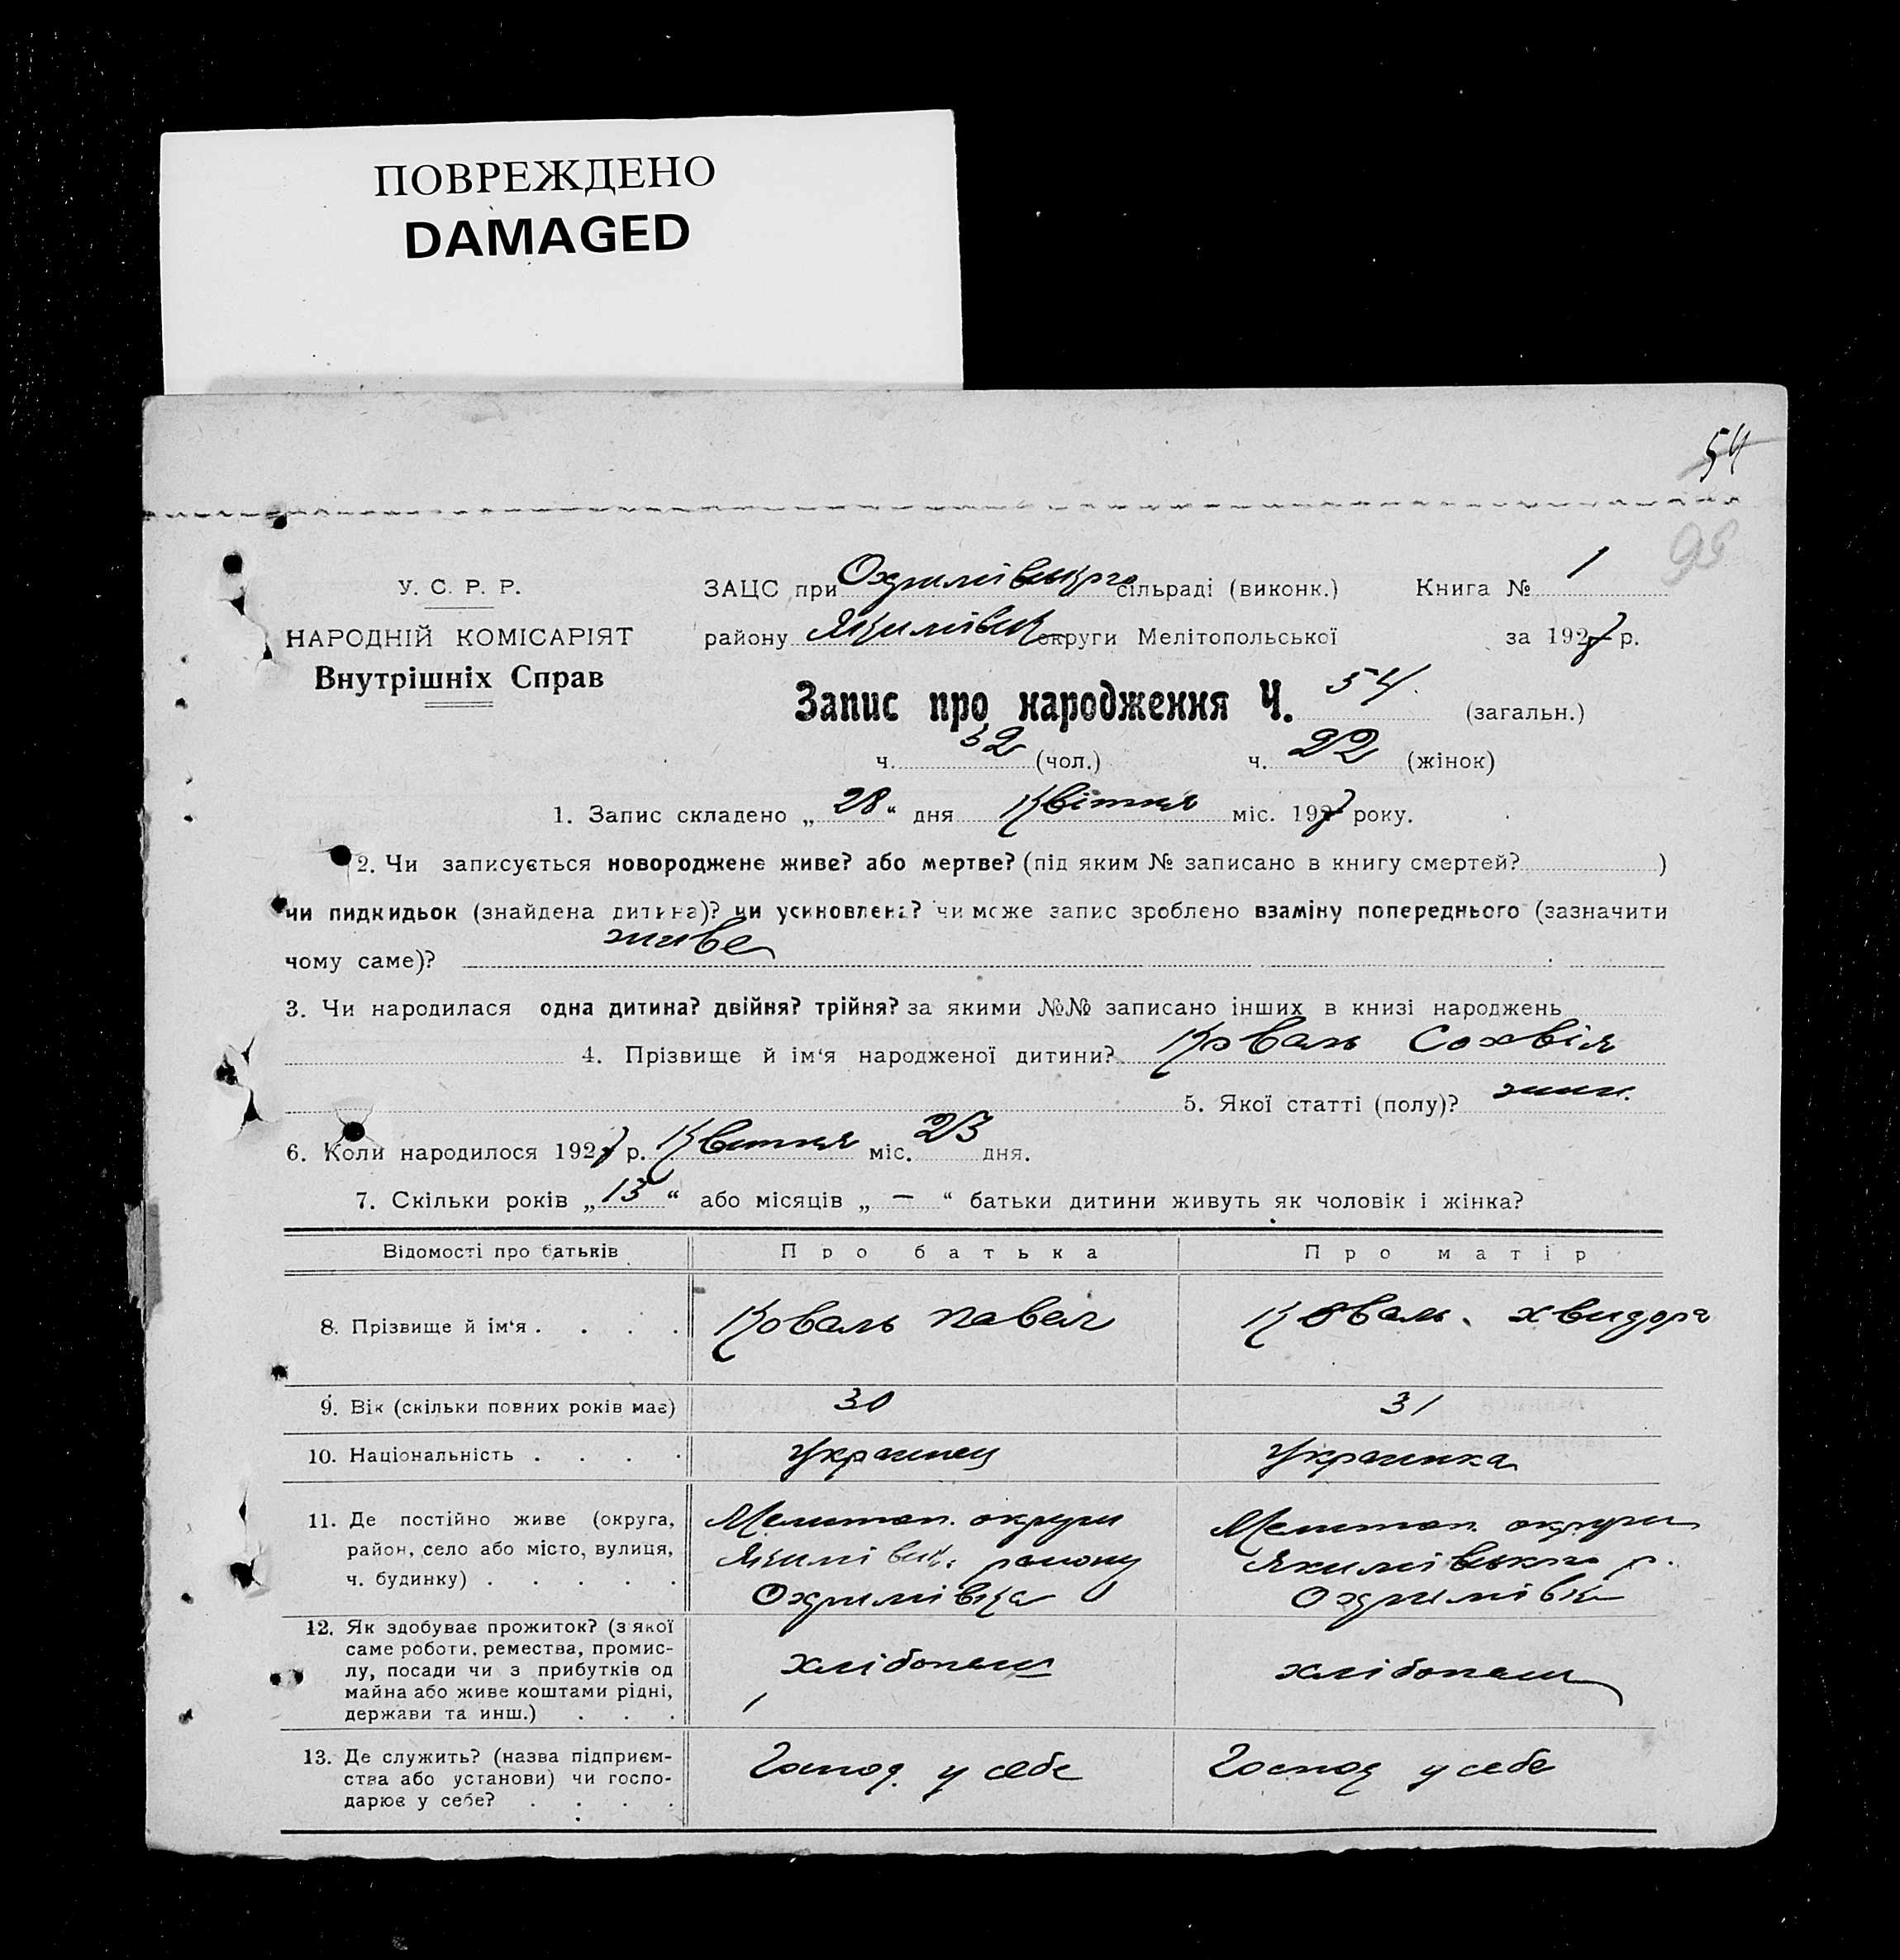 ПОВРЕЖДЕНО
DAMAGED
54
98
У. С. Р. Р.
НАРОДНІЙ КОМІСАРІЯТ
Внутрішніх Справ
ЗАЦС при Охримівщко сільраді (виконк.) Книга № 1
району Якимівськ округи Мелітопольської за 1927 р.
Запис про народження Ч. 54 (загальн.)
ч. 32 (чол.) ч. 22 (жінок)
1. Запис складено „ 28 “ дня Квітня міс. 1927 року.
2. Чи записується новороджене живе? або мертве? (під яким № записано в книгу смертей? )
чи пидкидьок (знайдена дитина)? чи усиновлена? чи може запис зроблено взаміну попереднього (зазначити
чому саме)? живе
3. Чи народилася одна дитина? двійня? трійня? за якими №№ записано інших в книзі народжень
4. Прізвище й ім‘я народженої дитини? Коваль Сохвія
5. Якої статті (полу)? жин.
6. Коли народилося 1927 р. Квитня міс. 23 дня.
7. Скільки років „ 13 “ або місяців „ — “ батьки дитини живуть як чоловік і жінка?
Відомості про батьків Про батька Про матір
8. Прізвище й ім‘я . . . . Коваль Павел Коваль. Хвидора
9. Вік (скільки повних років має) 30 31
10. Національність . . . . Украинец Украинка
11. Де постійно живе (округа, Мелитоп. округи Мелитоп. округи
район, село або місто, вулиця, Якимівск. району Якимівського р.
ч. будинку) . . . . . Охримівка Охримівк
12. Як здобуває прожиток? (з якої
саме роботи, ремества, промис-
лу, посади чи з прибутків од хлібопаш хлібопаш
майна або живе коштами рідні,
держави та инш.) . . .
13. Де служить? (назва підприєм- Господ. у себе Господ у себе
ства або установи) чи госпо-
дарює у себе? . . . .